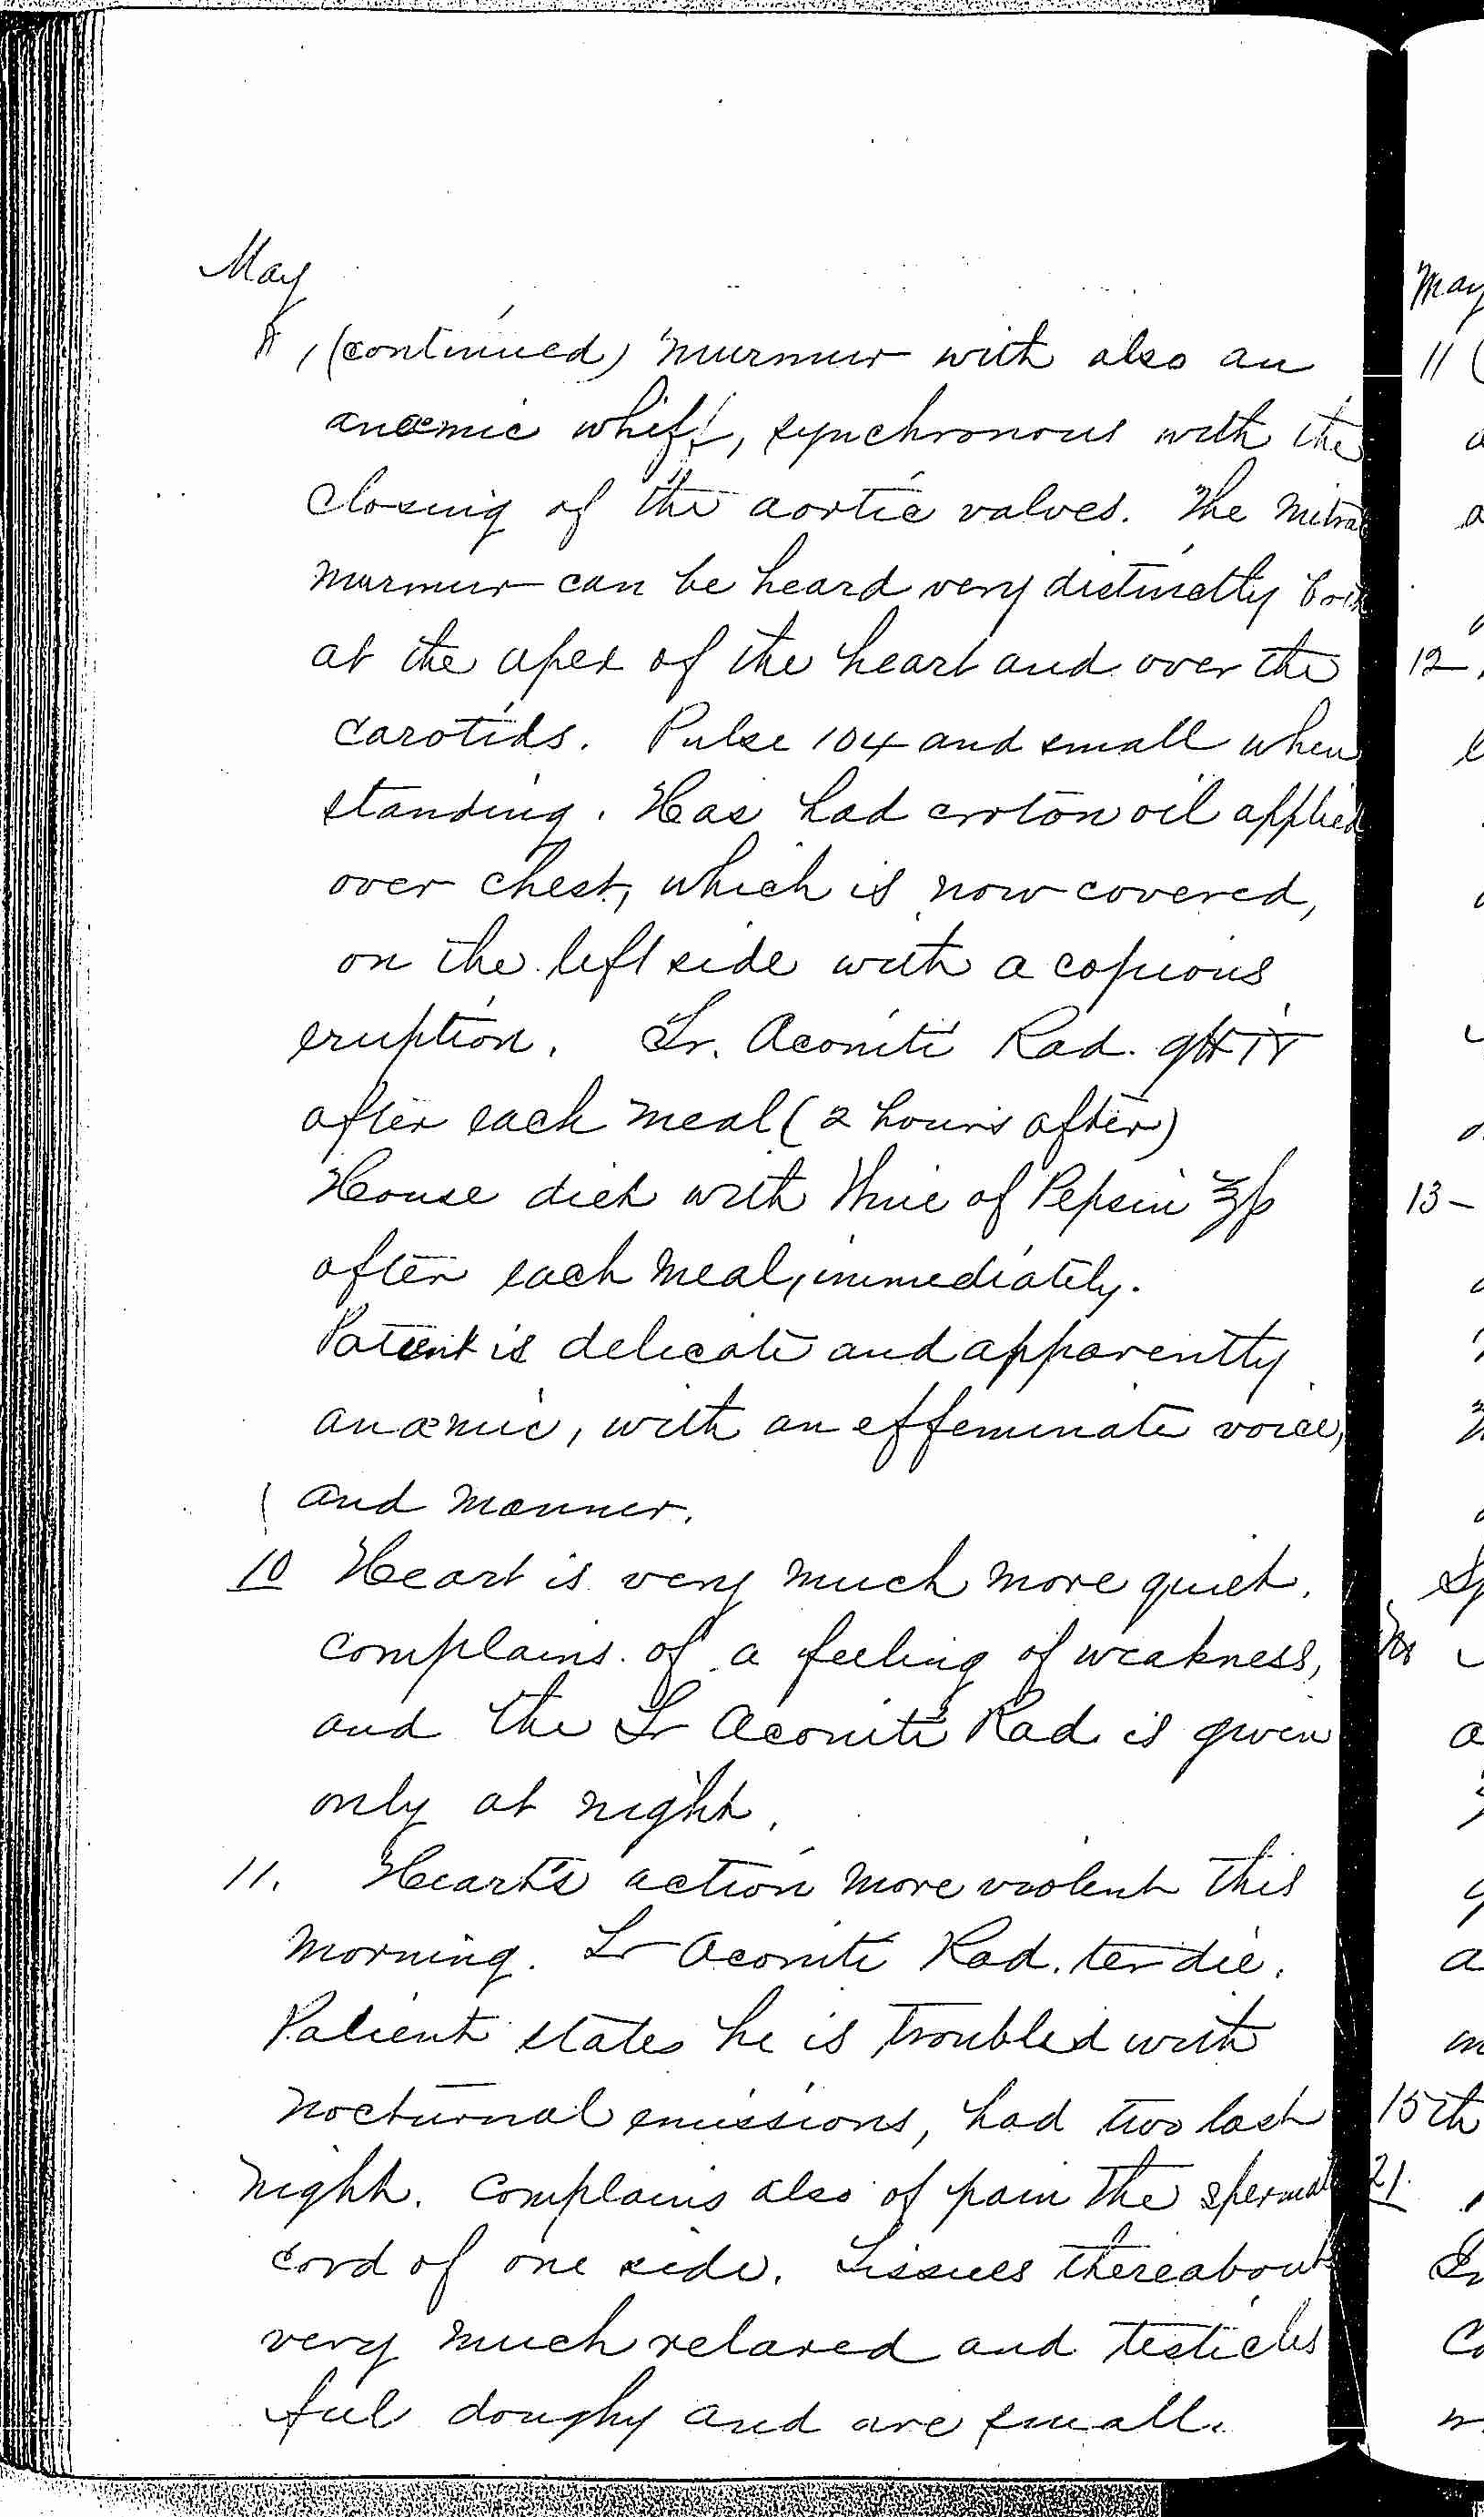 May
8, (continued) murmur with also an
anœmic whiff, synchronous with the
closing of the aortic valves. The mitral
murmur can be heard very distinctly both
at the apex of the heart and over the
carotids. Pulse 104 and small when
standing. Has had croton oil applied
over chest, which is now covered,
on the left side with a copious
eruption. Tr. Aconiti Rad. gtt
after each meal (2 hours after)
House diet with Wine of Pepsin ʒſs
after each meal, immediately.
Patient is delicate and apparently
anæmic, with an effeminate voice,
and manner.
10 Heart is very much more quiet.
Complains of a feeling of weakness,
and the Tr Aconiti Rad is given
only at night.
11. Heart's action more violent this
morning. Tr Aconiti Rad. ter die.
Patient states he is troubled with
nocturnal emissions, had two last
night. Complains also of pain the spermat
cord of one side. Tissues thereabouts
very much relaxed and testicles
feel doughy and are small.
May
11
12
13
15th
21